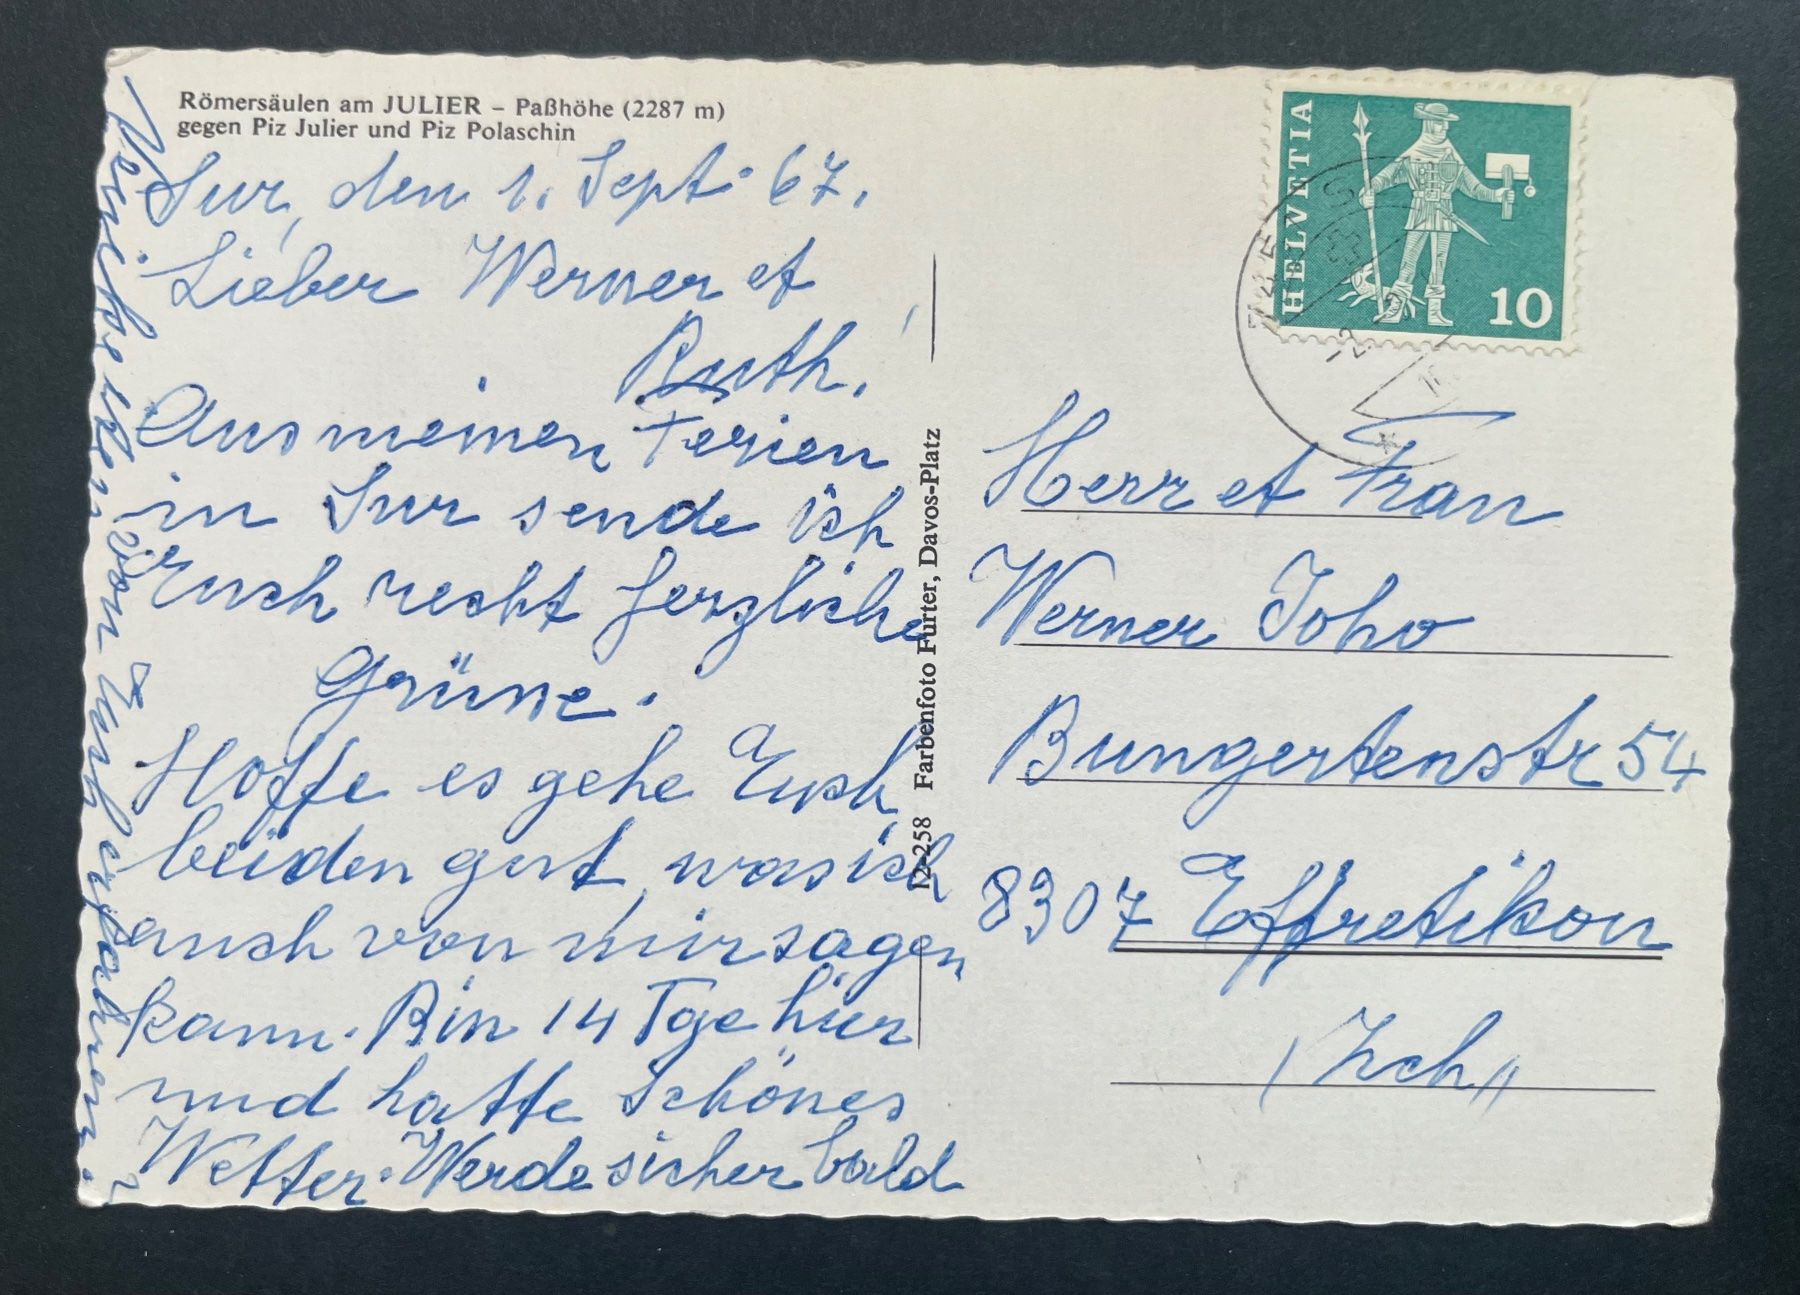 Römersäulen am JULIER – Paßhöhe (2287 m)
gegen Piz Julier und Piz Polaschin
Sur, den 1. Sept. 67.
Lieber Werner et
Ruth,
Aus meinen Ferien
in Sur sende ich
Euch recht herzliche
Grüsse.
Hoffe es gehe Euch
beiden gut, was ich
auch von mir sagen
kann. Bin 14 Tge hier
und hatte schönes
Wetter. Werde sicher bald
von Euch erfahren.
12-258 Farbenfoto Furter, Davos-Platz
HELVETIA
10
Herr et Frau
Werner Joho
Bungertenstr 54
8307 Effretikon
(Zch)